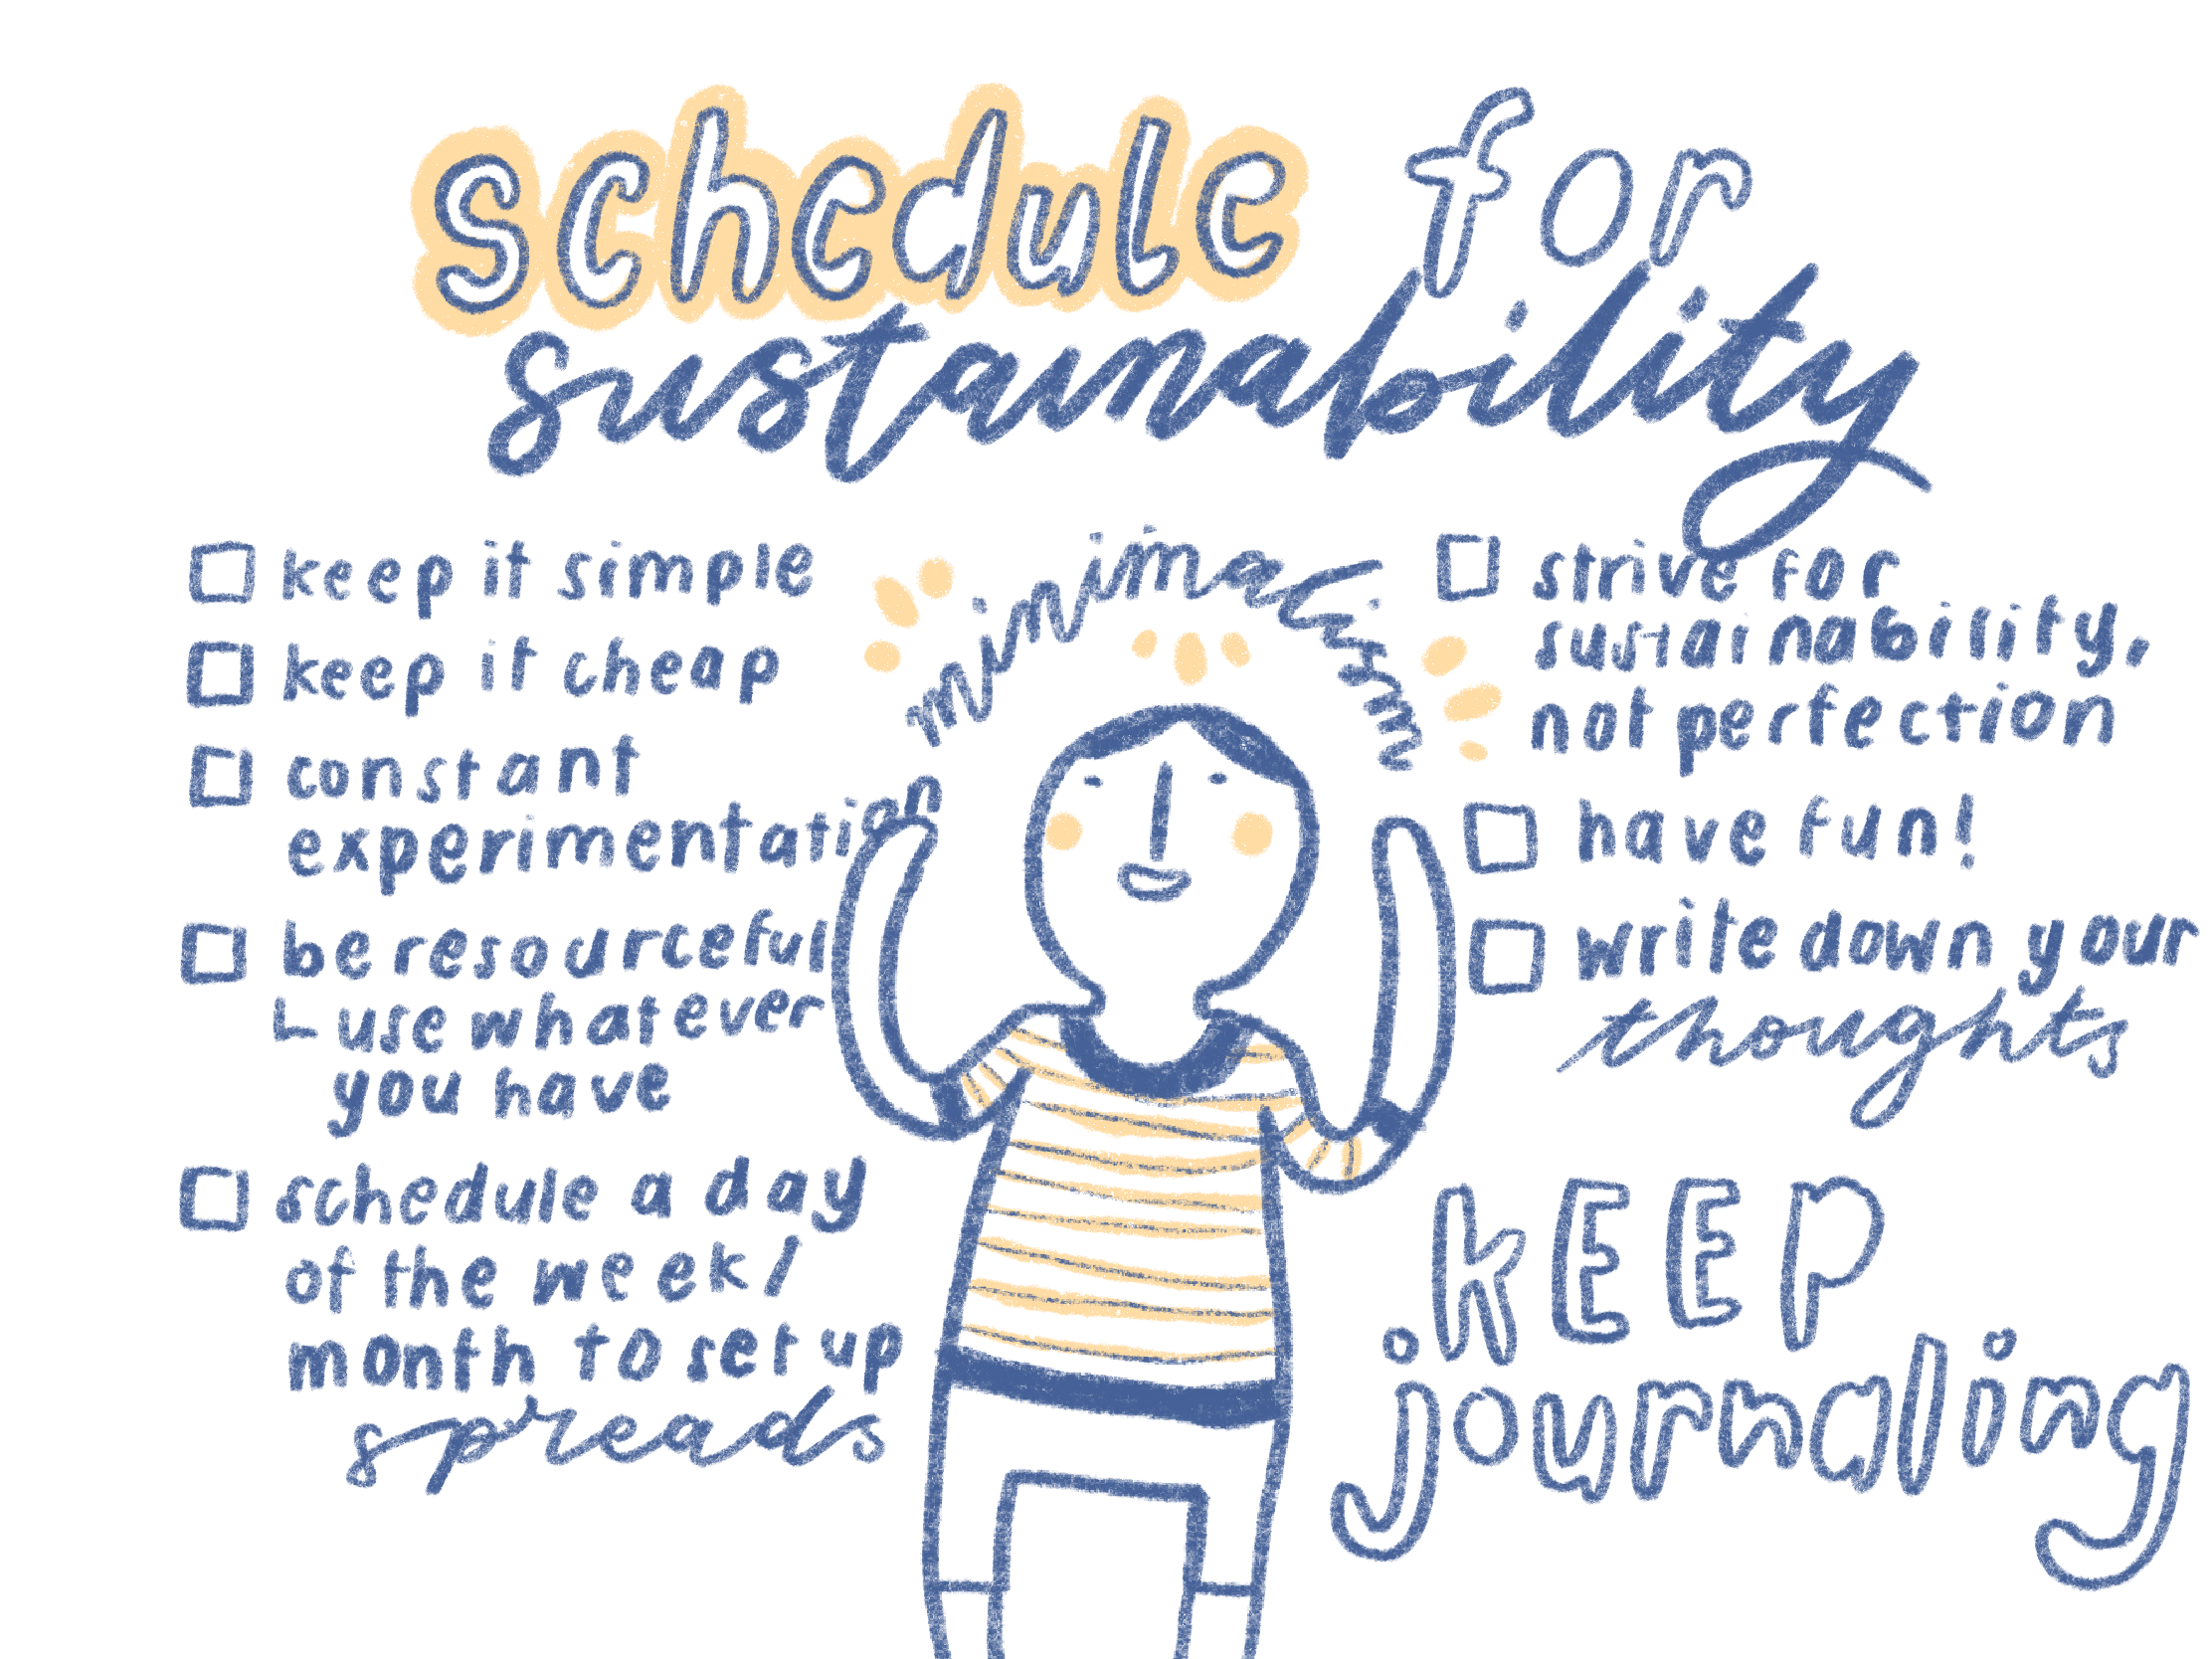 schedule for
sustainability
keep it simple
keep it cheap
constant
experimentation
be resourceful
use whatever
you have
schedule a day
of the week/
month to set up
spreads
minimalism
strive for
sustainability,
not perfection
have fun!
write down your
thoughts
KEEP
journaling